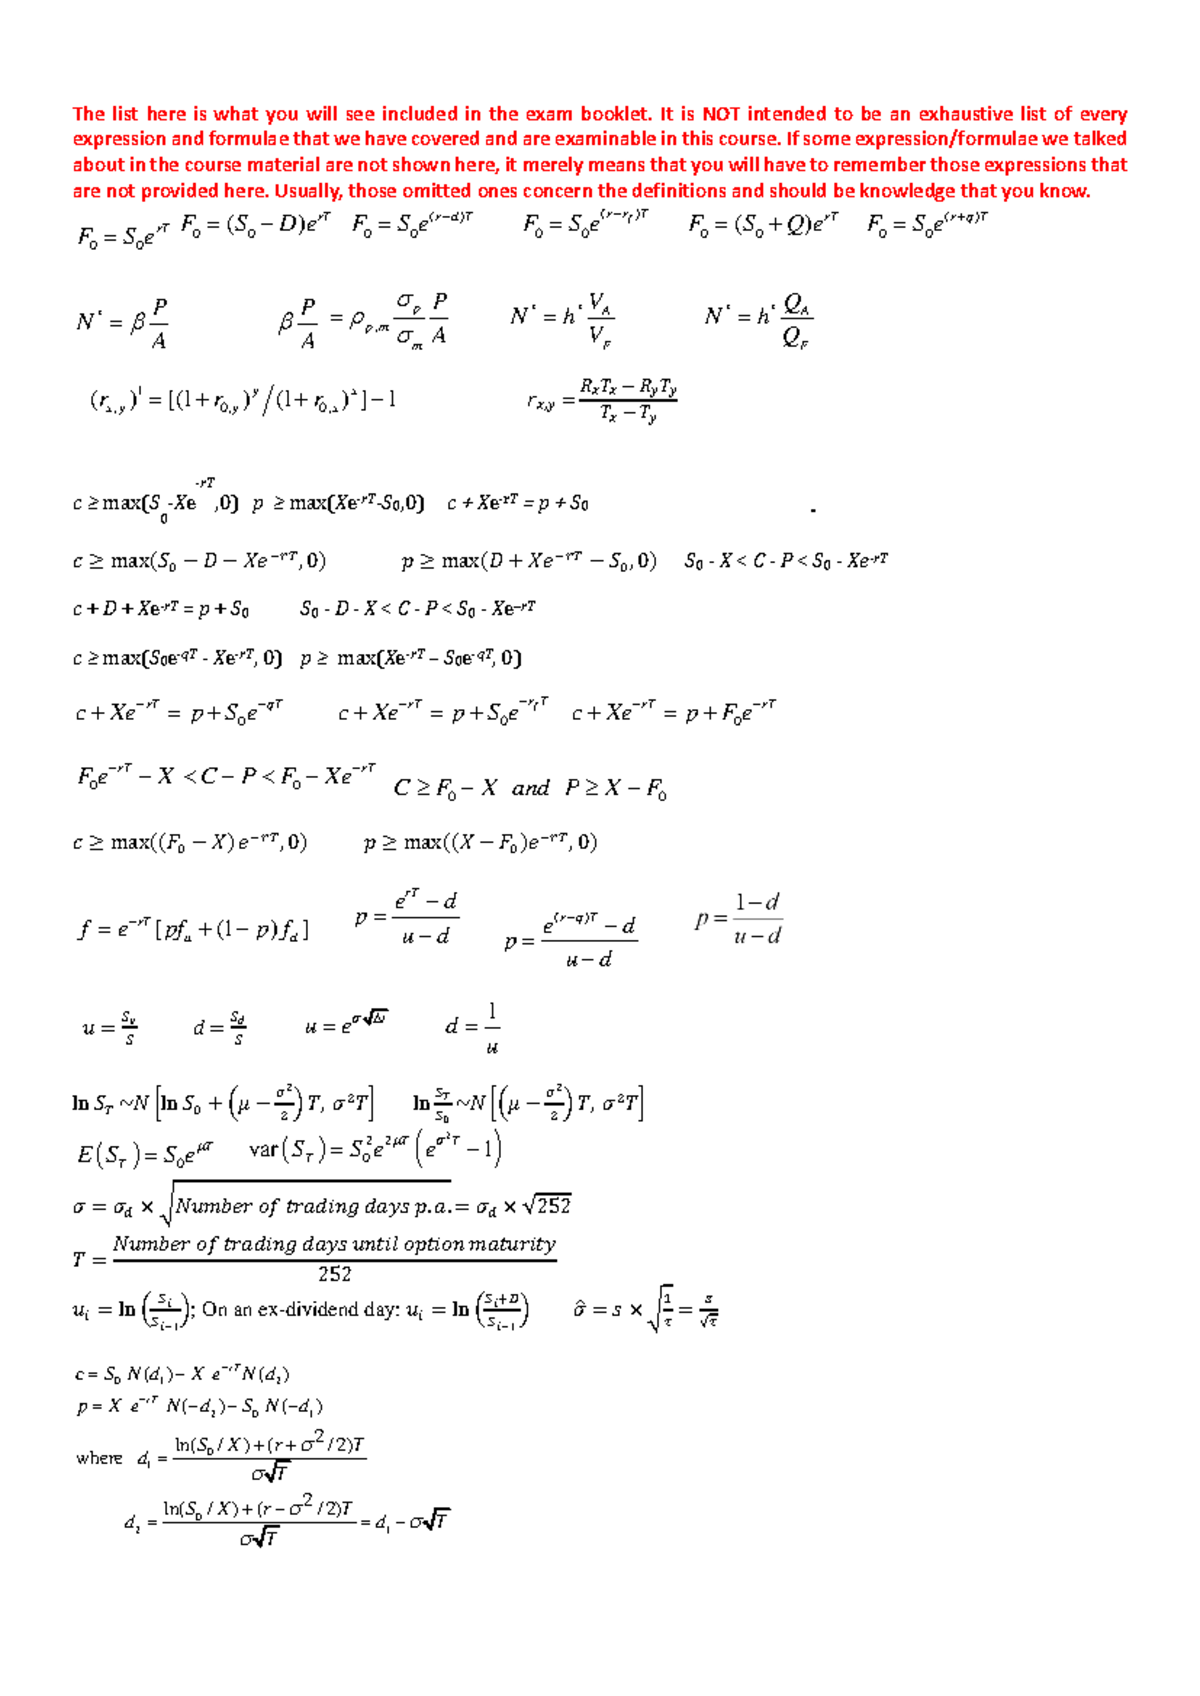 The list here is what you will see included in the exam booklet. It is NOT intended to be an exhaustive list of every
expression and formulae that we have covered and are examinable in this course. If some expression/formulae we talked
about in the course material are not shown here, it merely means that you will have to remember those expressions that
are not provided here. Usually, those omitted ones concern the definitions and should be knowledge that you know.
F₀ = S₀e^{rT} F₀ = (S₀ − D)e^{rT} F₀ = S₀e^{(r−d)T} F₀ = S₀e^{(r−r_f)T} F₀ = (S₀ + Q)e^{rT} F₀ = S₀e^{(r+q)T}
N* = β P/A β P/A = ρ_{p,m} σ_p/σ_m P/A N* = h* V_A/V_F N* = h* Q_A/Q_F
(r_{x,y})¹ = [(1 + r_{0,y})^y/(1 + r_{0,x})^x] − 1 r_{x,y} = (R_xT_x − R_yT_y)/(T_x − T_y)
c ≥ max(S₀-Xe^{-rT},0) p ≥ max(Xe^{-rT}-S₀,0) c + Xe^{-rT} = p + S₀
c ≥ max(S₀ − D − Xe^{−rT}, 0) p ≥ max(D + Xe^{−rT} − S₀, 0) S₀ - X < C - P < S₀ - Xe^{-rT}
c + D + Xe^{-rT} = p + S₀ S₀ - D - X < C - P < S₀ - Xe^{–rT}
c ≥ max(S₀e^{-qT} - Xe^{-rT}, 0) p ≥ max(Xe^{-rT} – S₀e^{-qT}, 0)
c + Xe^{−rT} = p + S₀e^{−qT} c + Xe^{−rT} = p + S₀e^{−r_f T} c + Xe^{−rT} = p + F₀e^{−rT}
F₀e^{−rT} − X < C − P < F₀ − Xe^{−rT} C ≥ F₀ − X and P ≥ X − F₀
c ≥ max((F₀ − X) e^{−rT}, 0) p ≥ max((X − F₀)e^{−rT}, 0)
f = e^{−rT} [pf_u + (1 − p)f_d] p = (e^{rT} − d)/(u − d) p = (e^{(r−q)T} − d)/(u − d) p = (1 − d)/(u − d)
u = S_u/S d = S_d/S u = e^{σ√Δt} d = 1/u
ln S_T ~N [ln S₀ + (μ − σ²/2) T, σ²T] ln S_T/S₀ ~N [(μ − σ²/2) T, σ²T]
E(S_T) = S₀e^{μT} var(S_T) = S₀²e^{2μT}(e^{σ²T} − 1)
σ = σ_d × √Number of trading days p.a. = σ_d × √252
T = Number of trading days until option maturity/252
u_i = ln (S_i/S_{i−1}); On an ex-dividend day: u_i = ln (S_i+D/S_{i−1}) σ̂ = s × √(1/τ) = s/√τ
c = S₀ N(d₁) − X e^{−rT}N(d₂)
p = X e^{−rT} N(−d₂) − S₀ N(−d₁)
where d₁ = (ln(S₀ / X) + (r + σ² / 2)T)/(σ√T)
d₂ = (ln(S₀ / X) + (r − σ² / 2)T)/(σ√T) = d₁ − σ√T